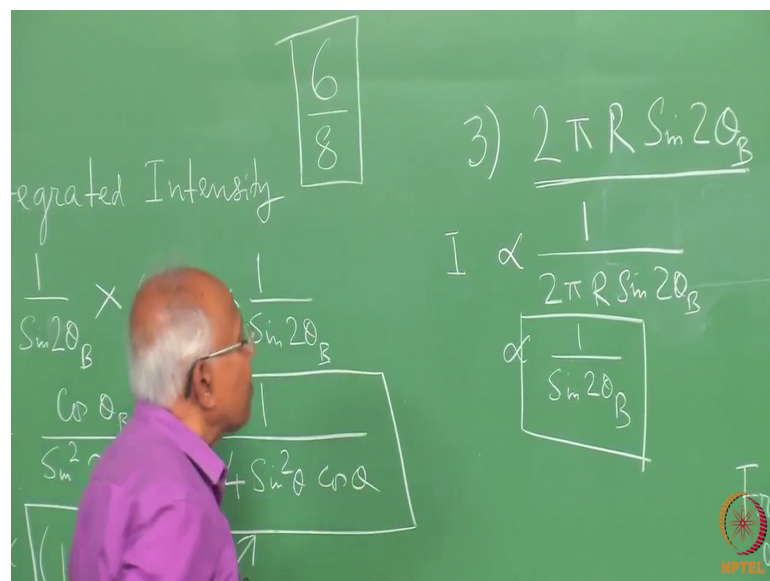 6
8
egrated Intensity
1
Sin2θ_B
×
1
Sin2θ_B
Cos θ_B
Sin²
1
4 Sin²θ Cosθ
3) 2πR Sin2θ_B
I ∝ 1
2πR Sin2θ_B
∝ 1
Sin2θ_B
NPTEL